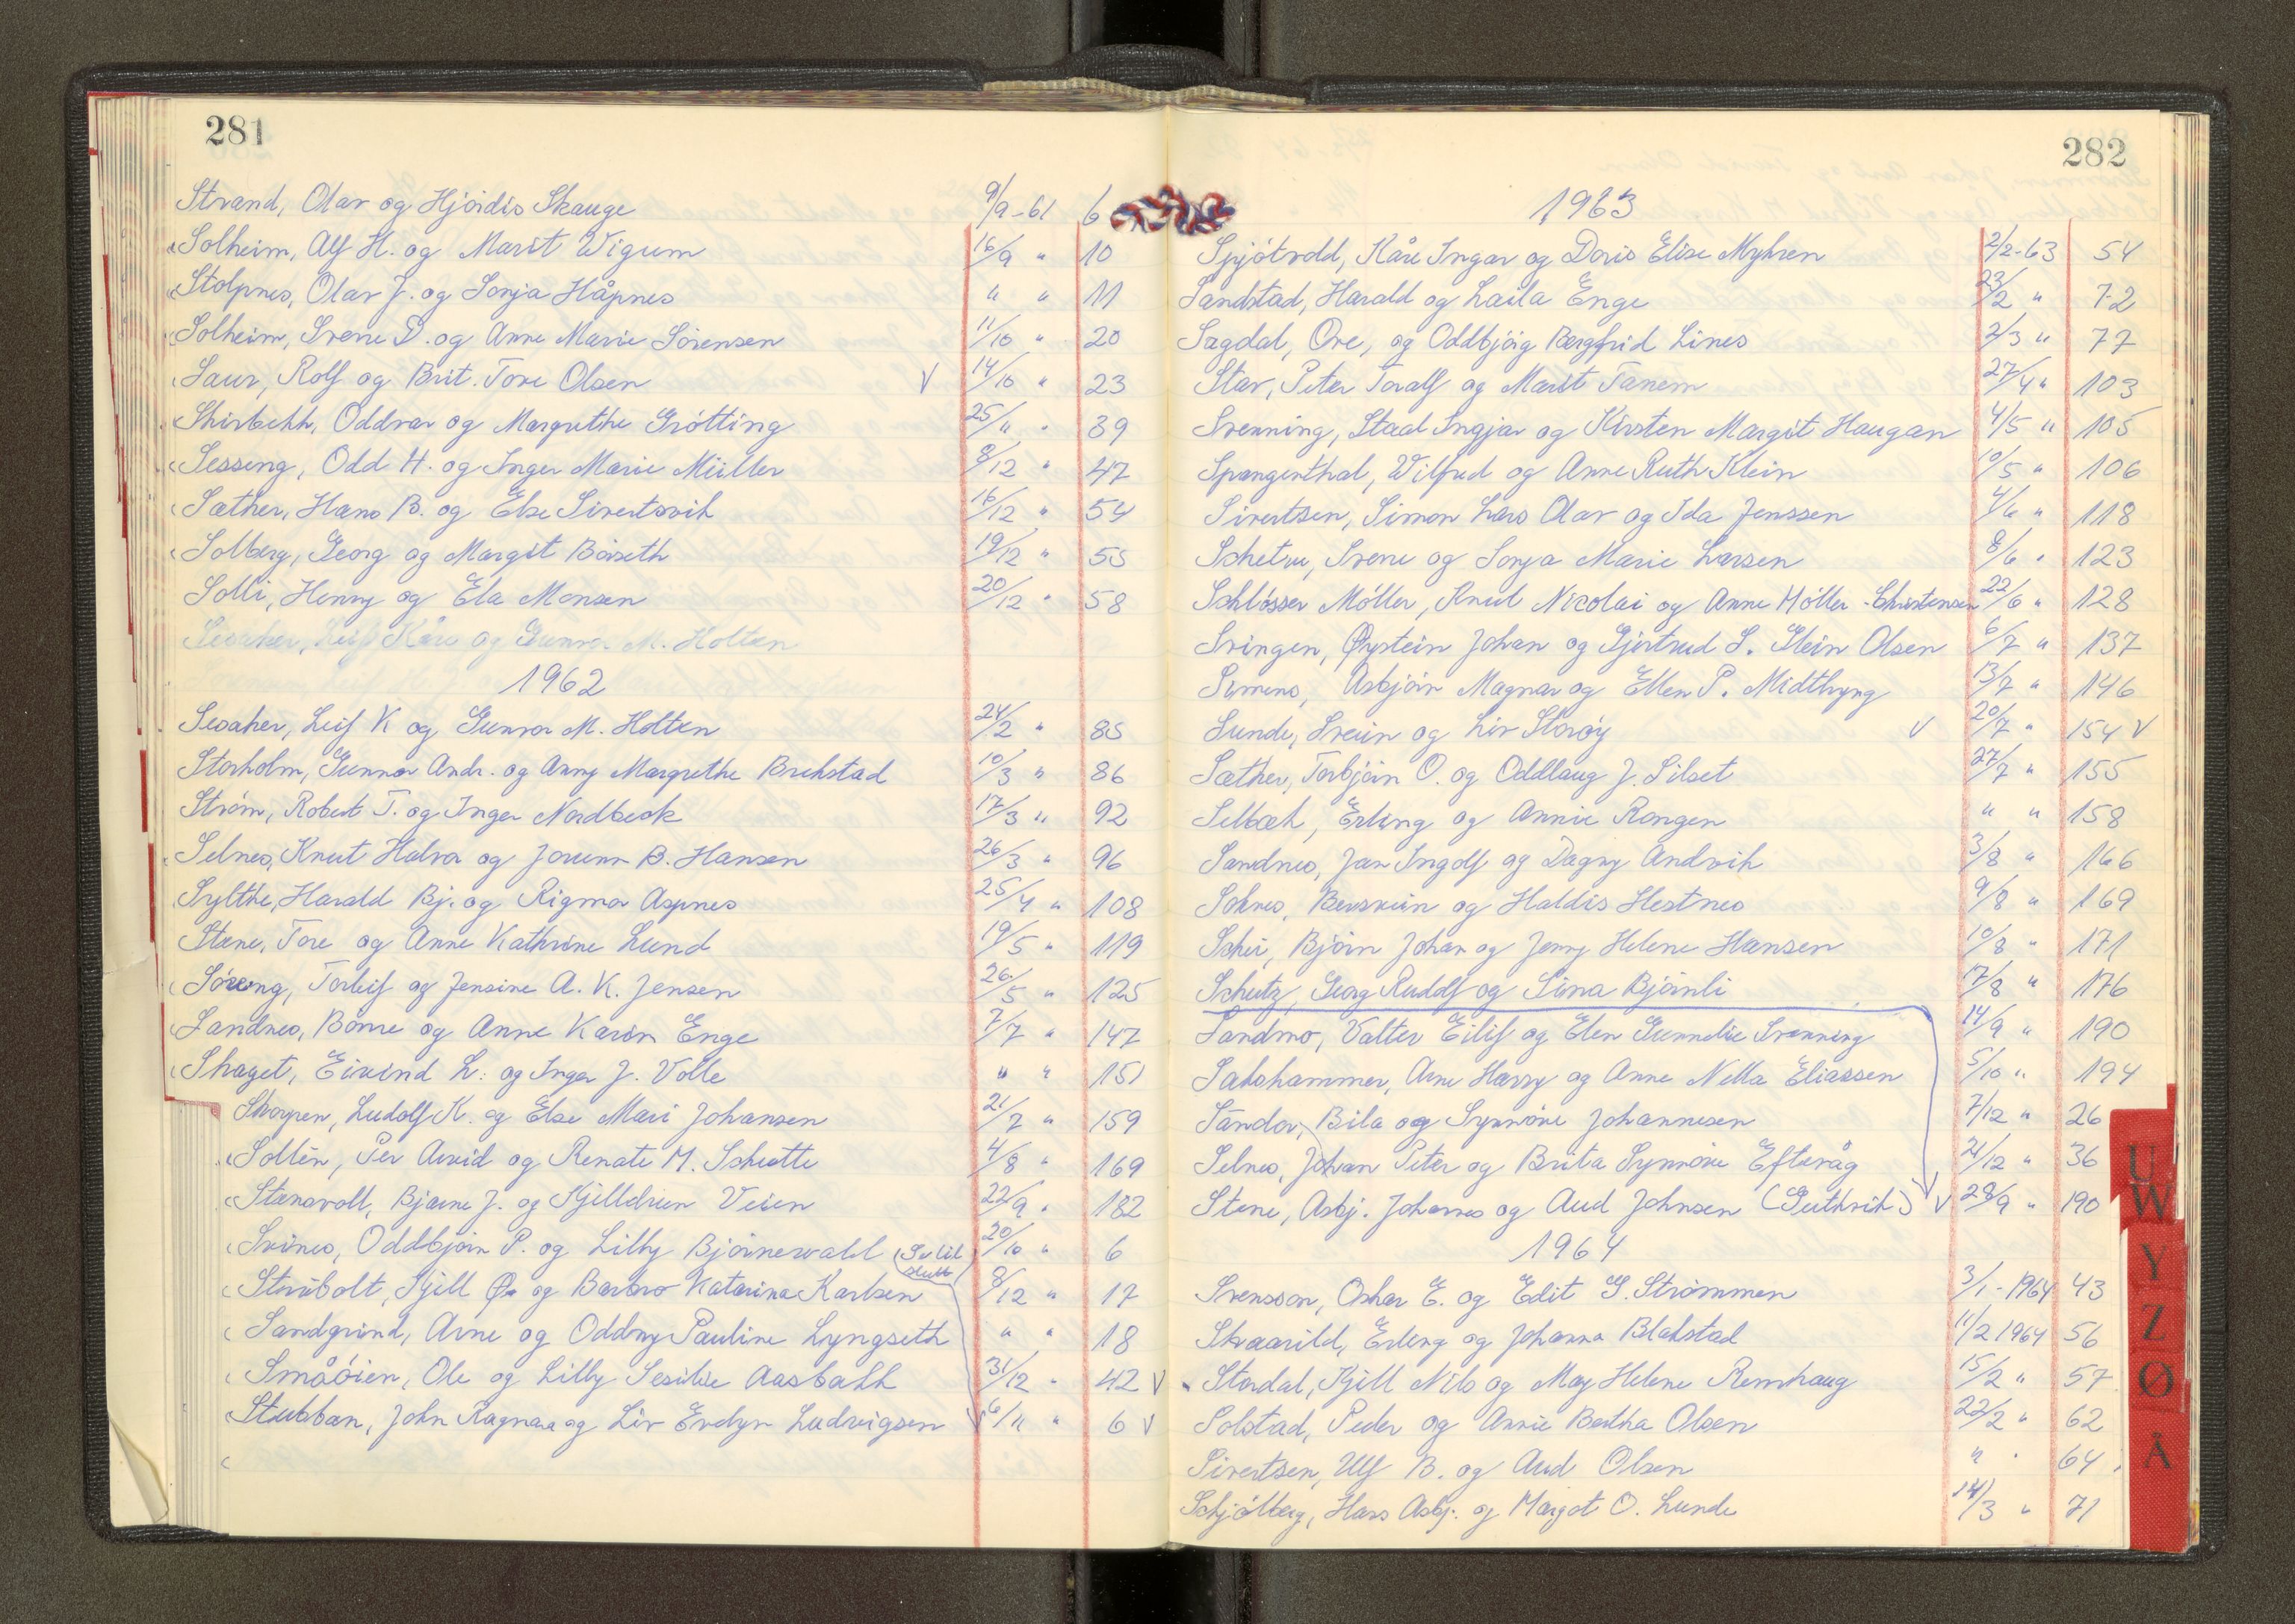 281
Strand, Olav og Hjördis Skauge 9/9-61 6
Solheim, Alf H. og Marit Wigum 16/9 " 10
Stolpnes, Olav J. og Sonja Håpnes " " 11
Solheim, Svene D. og Anne Marie Sörensen 11/10 " 20
Saur, Rolf og Brit. Tove Olsen V 14/10 " 23
Skirbekk, Oddvar og Margrethe Grötting 25/11 " 39
Sesseng, Odd H. og Inger Marie Müller 8/12 " 47
Sæther, Hans B. og Else Sivertsvik 16/12 " 54
Solberg, Georg og Margit Böiseth 19/12 " 55
Solli, Henry og Ela Monsen 20/12 " 58
Sesaker, Leif Kåre og Gunvor M. Holten
1962
Sesaker, Leif K og Gunvor M. Holten 24/2 " 85
Storholm, Gunnar Andr. og Anny Margrethe Brekstad 10/3 " 86
Ström, Robert T. og Inger Nordbeck 17/3 " 92
Selnes, Knut Halvor og Jorunn B. Hansen 26/3 " 96
Sylthe, Harald Bj. og Rigmor Aspnes 25/4 " 108
Stene, Tore og Anne Kathrine Lund 19/5 " 119
Söreng, Torleif og Jensine A. K. Jensen 26/5 " 125
Sandnes, Börre og Anne Karin Enge 7/7 " 147
Skaget, Eivind L. og Inger J. Volle " " 151
Skorpen, Ludolf K. og Else Mari Johansen 21/7 " 159
Sollén, Per Arvid og Renate M. Schütte 4/8 " 169
Stenavoll, Bjarne J. og Kjelldrun Veien 22/9 " 182
Svines, Oddbjörn P. og Lilly Björnewall 20/10 " 6
Struibolt, Kjell Ø. og Barbro Katarina Karlsen 8/12 " 17
Sandgrind, Arne og Oddny Pauline Lyngseth " " 18
Småöien, Ole og Lilly Sesilie Aasbakk 31/12 " 42 V
Stubban, John Ragnar og Liv Evelyn Ludvigsen V 6/11 " 6 V
282
1963
Spjötvold, Kåre Ingar og Doris Elise Myhren 2/2-63 54
Sandstad, Harald og Laila Enge 23/2 " 72
Sagdal, Ove, og Oddbjörg Bergfrid Lines 2/3 " 77
Stav, Peter Toralf og Marit Tanem 27/4 " 103
Svenning, Staal Ingjar og Kirsten Margit Haugan 4/5 " 105
Spangenthal, Wilfred og Anne Ruth Klein 10/5 " 106
Sivertsen, Simon Lars Olav og Ida Jenssen 4/6 " 118
Schetne, Svene og Sonja Marie Larsen 8/6 " 123
Schlösser Möller, Knut Nicolai og Anne Möller-Christensen 22/6 " 128
Svingen, Øystein Johan og Gjertrud S. Stein Olsen 6/7 " 137
Simenes, Asbjörn Magnar og Ellen P. Midtlyng 13/7 " 146
Sunde, Svein og Liv Storøy V 20/7 " 154 V
Sæther, Torbjörn O. og Oddlaug J. Silset 27/7 " 155
Selbæk, Erling og Annie Rongen " " 158
Sandnes, Jan Ingolf og Dagny Andvik 3/8 " 166
Soknes, Bersvein og Haldis Hestnes 9/8 " 169
Schei, Björn Johan og Jenny Helene Hansen 10/8 " 171
Schutz, Georg Rudolf og Sina Björnli 17/8 " 176
Sandmo, Valter Eilif og Elen Gunnelie Svenning 14/9 " 190
Sakshammer, Arne Harry og Anne Nella Eliassen 5/10 " 194
Sandor, Bila og Synnöve Johannesen 7/12 " 26
Selnes, Johan Peter og Brita Synnöve Eftevåg 21/12 " 36
Stene, Asbj. Johannes og Aud Johnsen (Guthvik) V 28/9 " 190
1964
Svensson, Oskar E. og Edit G. Strömmen 3/1-1964 43
Skaarild, Erling og Johanna Blakstad 11/2 1964 56
Stordal, Kjell Nils og May Helene Remhaug 15/2 " 57
Solstad, Peder og Annie Bertha Olsen 22/2 " 62
Sivertsen, Ulf B. og Aud Olsen " " 64
Schjölberg, Hans Asbj. og Margot O. Lunde 14/3 " 71
U
W
Y
Z
Ø
Å